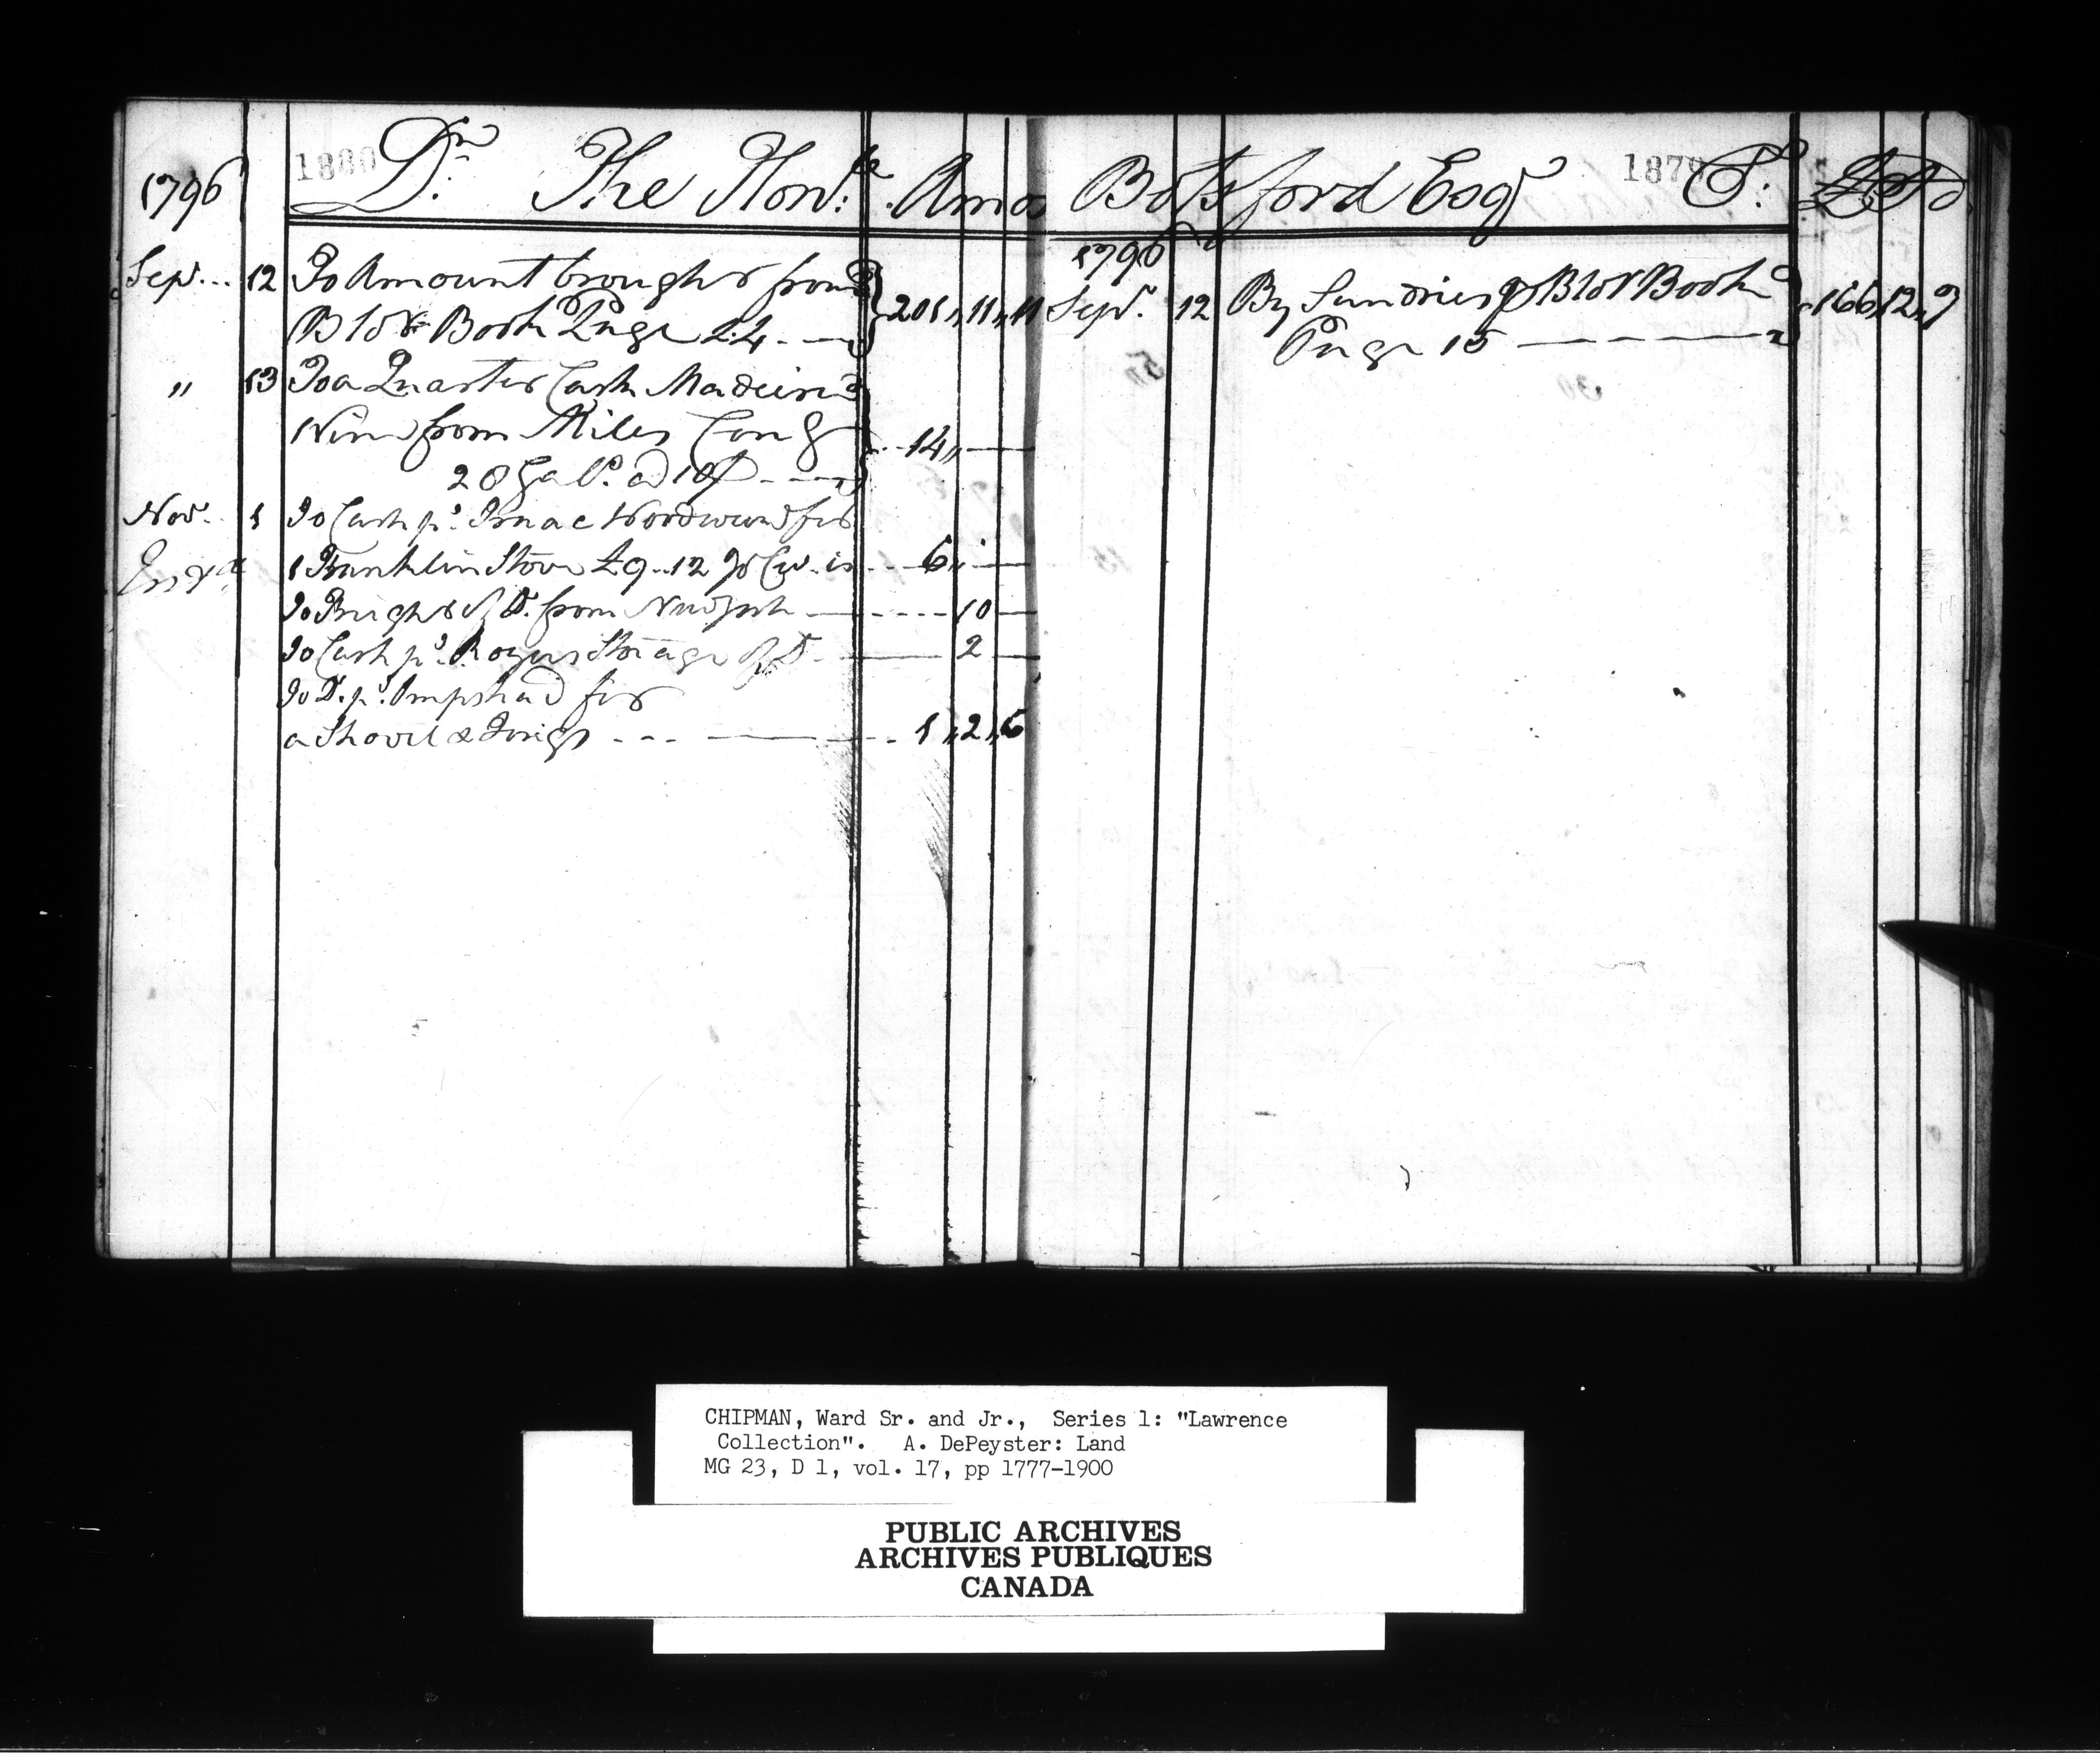 1880
1879
1796 Dr. The Honble. Amos Botsford Esqr Cr. £ S D
Sepr. 12 To Amount brought from
Blot Book Page 24 201,,11,,11
,, 13 To a Quarter Cask Madeira
Wine from Miles
28 Galls. a 10/ 14,,
Novr. 1 To Cash pd. Isaac Woodward for
1 Franklin Stove £9..12 Yo Cy. is 6,,
To Freight of Do. from New York 10
To Cash pd. Rogers Storage of Do. 2
To Do. pd. for
a Shovel & Tongs 1,,2,,6
1796
Sepr. 12 By Sundries p Blot Book
Page 15 166,,12,,9
CHIPMAN, Ward Sr. and Jr., Series 1: "Lawrence
Collection". A. DePeyster: Land
MG 23, D 1, vol. 17, pp 1777-1900
PUBLIC ARCHIVES
ARCHIVES PUBLIQUES
CANADA